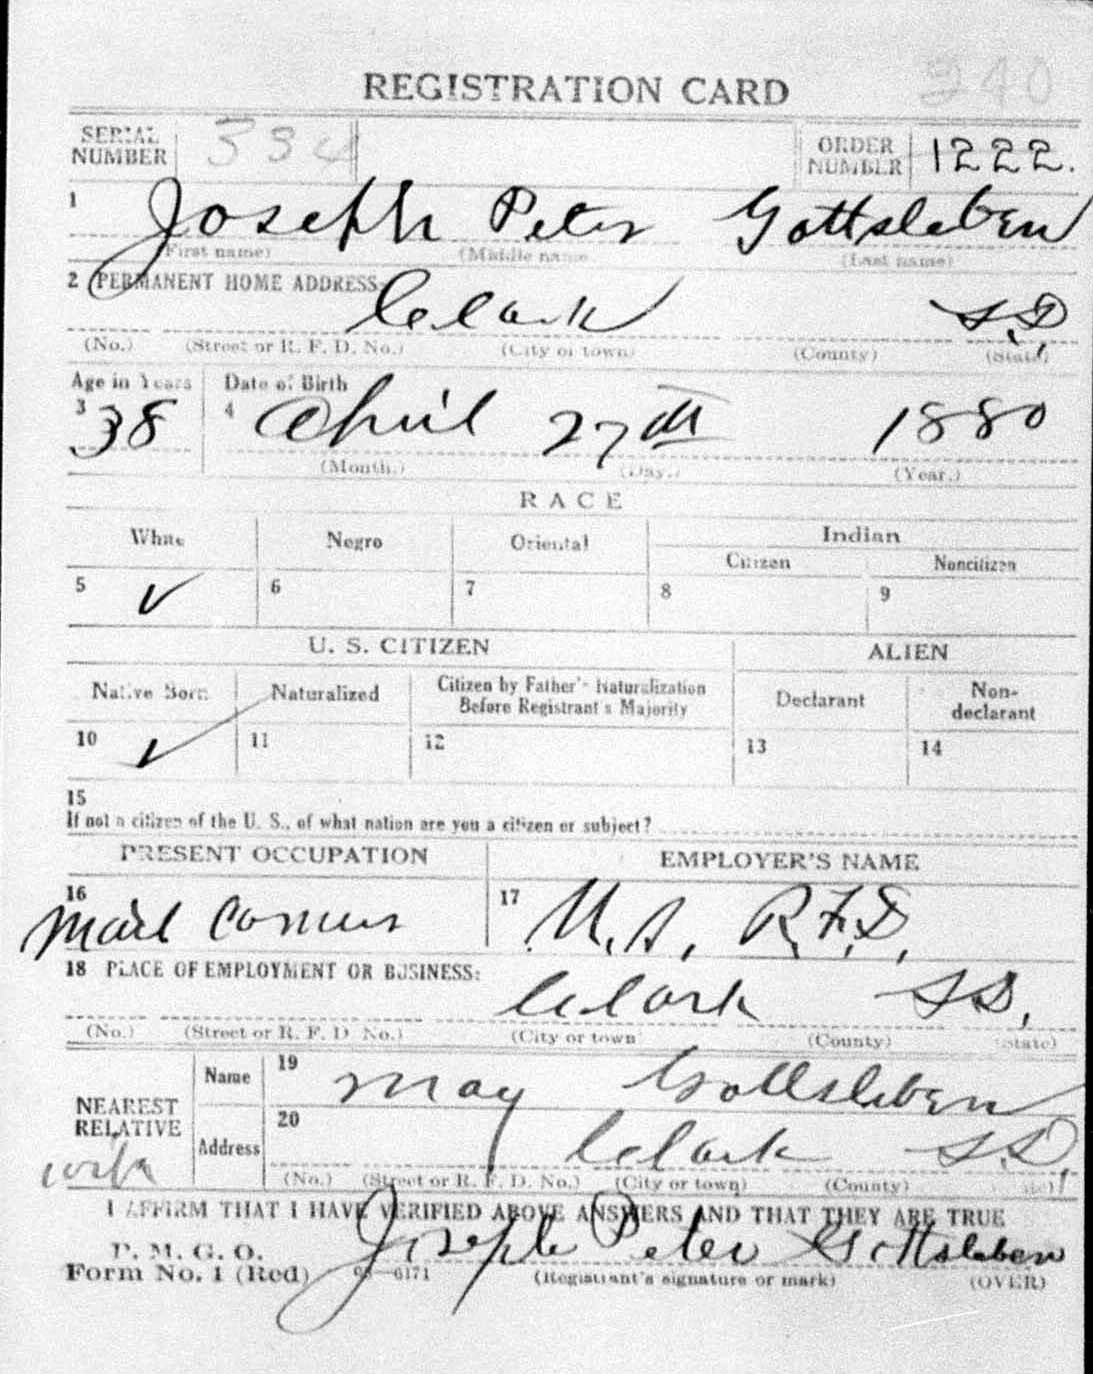 240
REGISTRATION CARD
SERIAL NUMBER 334 ORDER NUMBER 1222.
1 Joseph Peter Gottsleben
(First name) (Middle name) (Last name)
2 PERMANENT HOME ADDRESS:
Clark S.D.
(No.) (Street or R. F. D. No.) (City or town) (County) (State)
Age in Years Date of Birth
3 38 4 April 27th 1880
(Month.) (Day.) (Year.)
RACE
White Negro Oriental Indian
Citizen Noncitizen
5 ✓ 6 7 8 9
U. S. CITIZEN ALIEN
Native Born Naturalized Citizen by Father's Naturalization Before Registrant's Majority Declarant Non-declarant
10 ✓ 11 12 13 14
15
If not a citizen of the U. S., of what nation are you a citizen or subject?
PRESENT OCCUPATION EMPLOYER'S NAME
16 Mail Carrier 17 U.S. R.F.D.
18 PLACE OF EMPLOYMENT OR BUSINESS:
Clark S.D.
(No.) (Street or R. F. D. No.) (City or town) (County) (State)
NEAREST RELATIVE Name 19 May Gottsleben
wife Address 20 Clark S.D.
(No.) (Street or R. F. D. No.) (City or town) (County) (State)
I AFFIRM THAT I HAVE VERIFIED ABOVE ANSWERS AND THAT THEY ARE TRUE
P. M. G. O.
Form No. 1 (Red) Joseph Peter Gottsleben
(Registrant's signature or mark) (OVER)